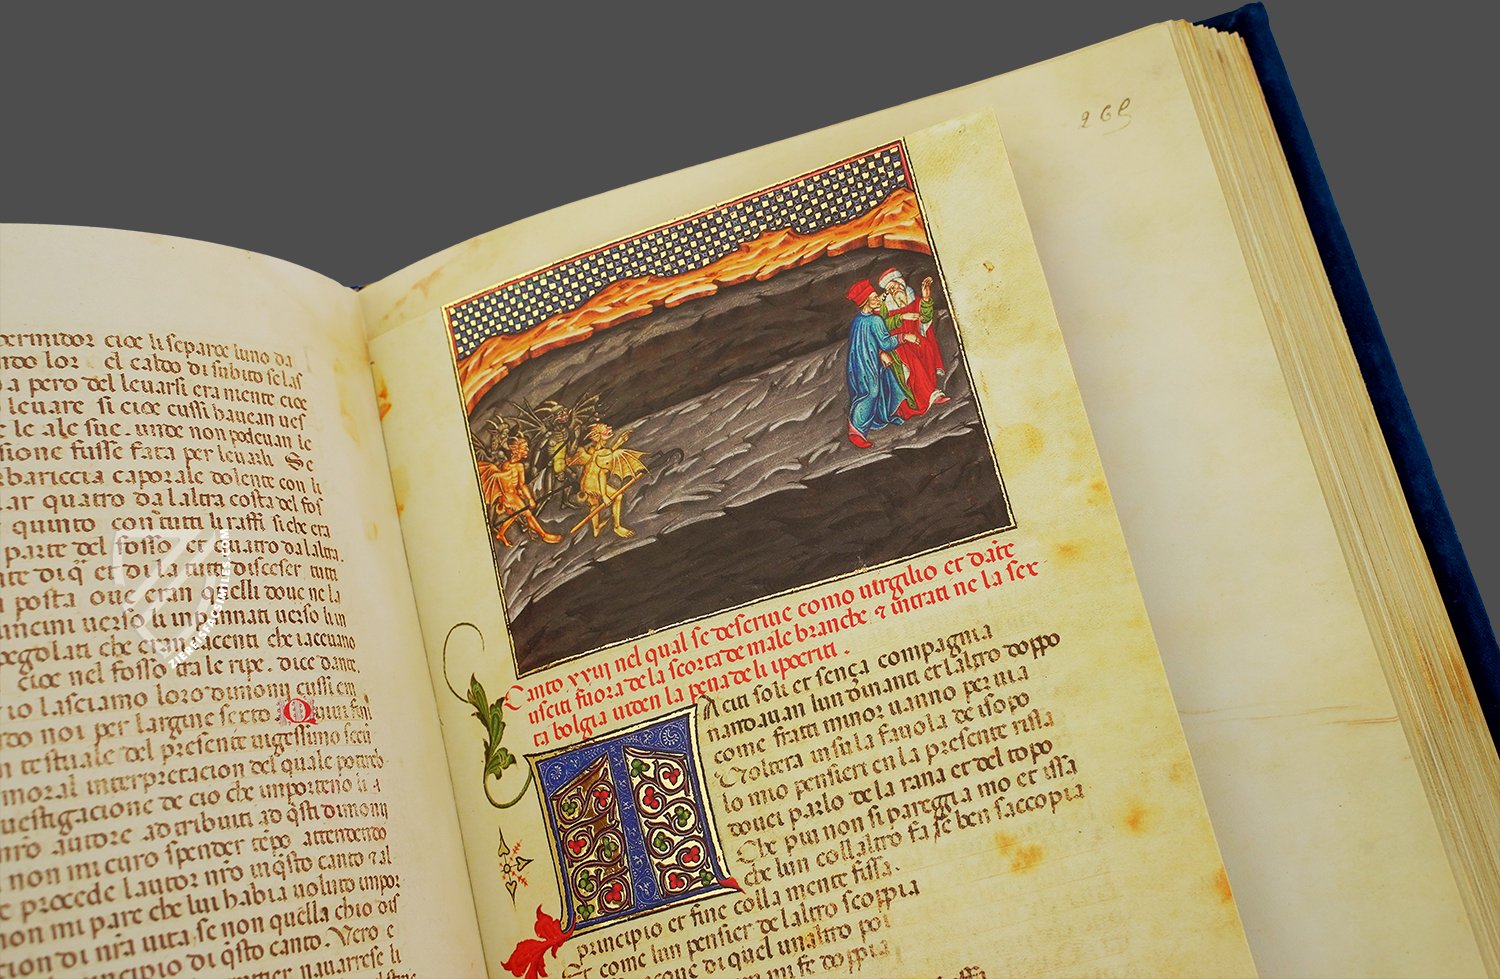 cioe li separoe luno da
lor el caldo di subito se las
a pero del levarsi era mente cioe
levare si cioe cussi bauean ues
le ale sue. unde non podeuan le
fusse fata per leuarli Se
barbariccia caporale dolente con li
quatro da laltra costa del fos
quinto con tutti li raffi si che era
parte del fosso et quatro da laltra
te di q̄ et di la tutti disceser tutti
posta oue eran quelli doue ne la
uncini uerso li inpaniati uerso li
pegolati che eran iacenti che iaceuano
cioe nel fosso tra le ripe. dice dante
io lasciamo loro dimonii cussi em
noi per largine sexto. Qui
testuale del presente uigessimo secū
moral interpretacion del quale poterēb
uestigacione de cio che inporteno li
autore adtributi ad q̄sti dimonii
non mi curo spender tēpo attendendo
procede lautor nr̄o in q̄sto canto ⁊ al
non mi pare che lui habia uoluto inpor
di nr̄a uita, se non quella chio dis
principio di q̄sto canto. Vero e
nauarrese li
269
Canto xxiii nel qual se descriue como uirgilio et dāte
usciti fuora de la scorta de male branche ⁊ intrati ne la sex
ta bolgia uiden la pena de li ipocriti.
Taciti soli et sença compagnia
nandauan lun dinanti et laltro doppo
come frati minor uanno per uia
Uolto era in su la fauola de isopo
lo mio pensier en la presente rissa
douei parlo de la rana et del topo
Che piu non si pareggia mo et issa
che lun collaltro fa se ben saccopia
principio et fine colla mente fissa.
Et come lun pensier de laltro scoppia
nacque di quel unaltro poi
mi fe doppia